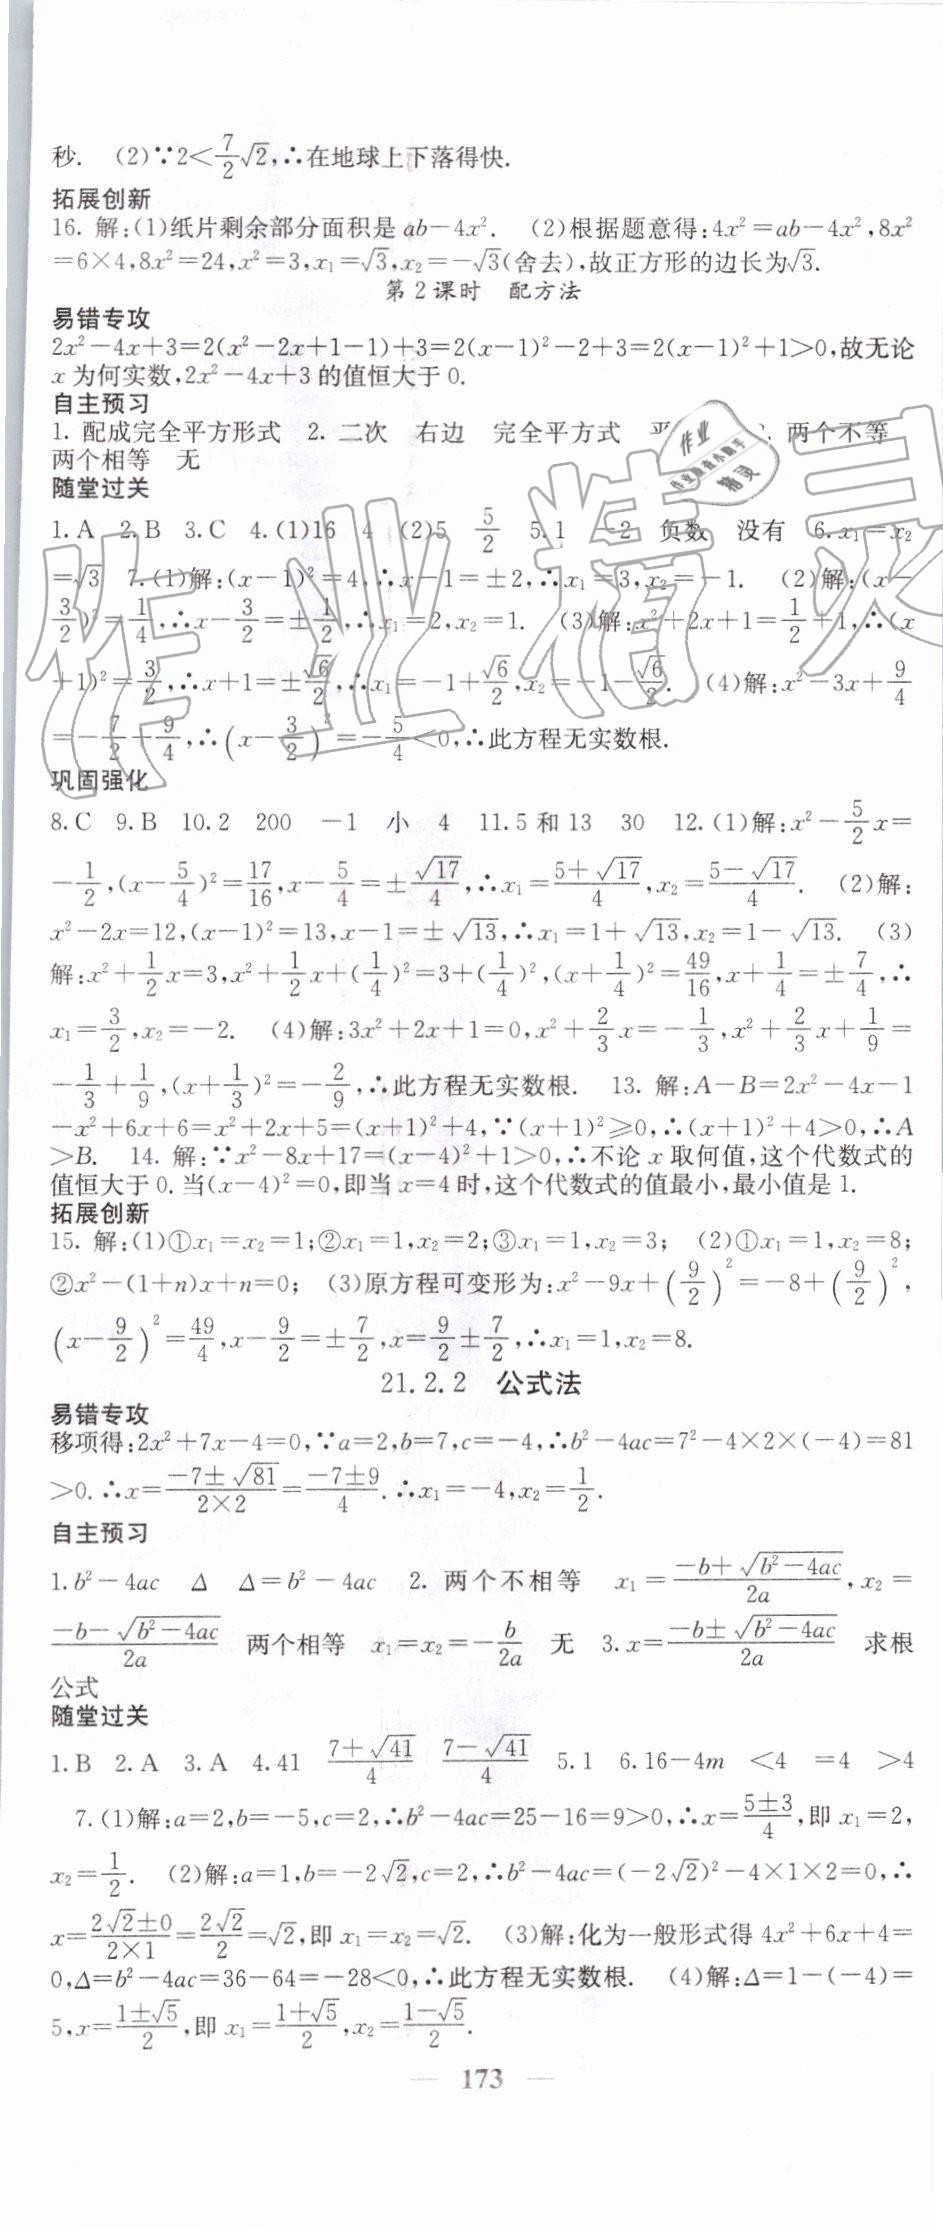 秒. (2)∵2<7/2√2,∴在地球上下落得快.
拓展创新
16. 解:(1)纸片剩余部分面积是 ab-4x². (2)根据题意得:4x²=ab-4x²,8x²
=6×4,8x²=24,x²=3,x₁=√3,x₂=-√3(舍去),故正方形的边长为√3.
第2课时 配方法
易错专攻
2x²-4x+3=2(x²-2x+1-1)+3=2(x-1)²-2+3=2(x-1)²+1>0,故无论
x 为何实数,2x²-4x+3 的值恒大于 0.
自主预习
1. 配成完全平方形式 2. 二次 右边 完全平方式 两个不等
两个相等 无
随堂过关
1. A 2. B 3. C 4. (1)16 4 (2)5 5/2 5. 1 -2 负数 没有 6. x₁=x₂
=√3 7. (1)解:(x-1)²=4,∴x-1=±2,∴x₁=3,x₂=-1. (2)解:(x-
3/2)²=1/4,∴x-3/2=±1/2,∴x₁=2,x₂=1. (3)解:x²+2x+1=1/2+1,∴(x
+1)²=3/2,∴x+1=±√6/2,∴x₁=-1+√6/2,x₂=-1-√6/2. (4)解:x²-3x+9/4
=-7/2+9/4,∴(x-3/2)²=-5/4<0,∴此方程无实数根.
巩固强化
8. C 9. B 10. 2 200 -1 小 4 11. 5 和 13 30 12. (1)解:x²-5/2x=
-1/2,(x-5/4)²=17/16,x-5/4=±√17/4,∴x₁=(5+√17)/4,x₂=(5-√17)/4. (2)解:
x²-2x=12,(x-1)²=13,x-1=±√13,∴x₁=1+√13,x₂=1-√13. (3)
解:x²+1/2x=3,x²+1/2x+(1/4)²=3+(1/4)²,(x+1/4)²=49/16,x+1/4=±7/4,∴
x₁=3/2,x₂=-2. (4)解:3x²+2x+1=0,x²+2/3x=-1/3,x²+2/3x+1/9=
-1/3+1/9,(x+1/3)²=-2/9,∴此方程无实数根. 13. 解:A-B=2x²-4x-1
-x²+6x+6=x²+2x+5=(x+1)²+4,∵(x+1)²≥0,∴(x+1)²+4>0,∴A
>B. 14. 解:∵x²-8x+17=(x-4)²+1>0,∴不论 x 取何值,这个代数式的
值恒大于 0. 当(x-4)²=0,即当 x=4 时,这个代数式的值最小,最小值是 1.
拓展创新
15. 解:(1)①x₁=x₂=1;②x₁=1,x₂=2;③x₁=1,x₂=3; (2)①x₁=1,x₂=8;
②x²-(1+n)x+n=0; (3)原方程可变形为:x²-9x+(9/2)²=-8+(9/2)²,
(x-9/2)²=49/4,x-9/2=±7/2,x=9/2±7/2,∴x₁=1,x₂=8.
21.2.2 公式法
易错专攻
移项得:2x²+7x-4=0,∵a=2,b=7,c=-4,∴b²-4ac=7²-4×2×(-4)=81
>0.∴x=(-7±√81)/(2×2)=(-7±9)/4.∴x₁=-4,x₂=1/2.
自主预习
1. b²-4ac Δ Δ=b²-4ac 2. 两个不相等 x₁=(-b+√(b²-4ac))/2a,x₂=
(-b-√(b²-4ac))/2a 两个相等 x₁=x₂=-b/2a 无 3. x=(-b±√(b²-4ac))/2a 求根
公式
随堂过关
1. B 2. A 3. A 4. 41 (7+√41)/4 (7-√41)/4 5. 1 6. 16-4m <4 =4 >4
7. (1)解:a=2,b=-5,c=2,∴b²-4ac=25-16=9>0,∴x=(5±3)/4,即 x₁=2,
x₂=1/2. (2)解:a=1,b=-2√2,c=2,∴b²-4ac=(-2√2)²-4×1×2=0,∴
x=(2√2±0)/(2×1)=2√2/2=√2,即 x₁=x₂=√2. (3)解:化为一般形式得 4x²+6x+4=
0,Δ=b²-4ac=36-64=-28<0,∴此方程无实数根. (4)解:Δ=1-(-4)=
5,x=(1±√5)/2,即 x₁=(1+√5)/2,x₂=(1-√5)/2.
— 173 —
作业精灵
作业
作业检查小助手
精灵